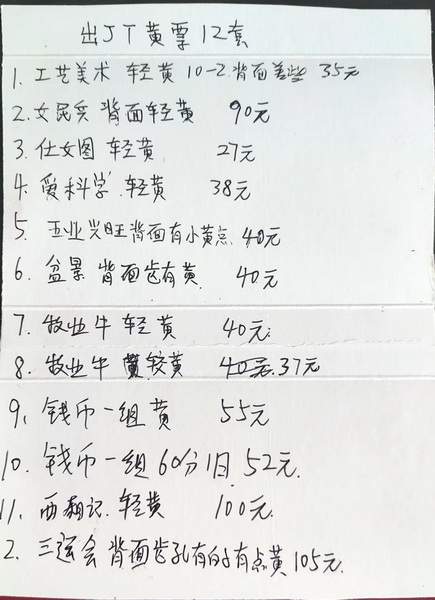 出JT黄票12套
1. 工艺美术 轻黄 10-2.背面差些 35元
2. 女民兵 背面轻黄 90元
3. 仕女图 轻黄 27元
4. 爱科学.轻黄 38元
5. 五业兴旺背面有小黄点 40元
6. 盆景 背面齿有黄. 40元
7. 牧业牛 轻黄 40元
8. 牧业牛 黄较黄 40元.37元
9. 钱币一组黄 55元
10. 钱币一组60分旧 52元.
11. 西厢记.轻黄 100元
2. 三运会 背面齿孔有的有点黄 105元.